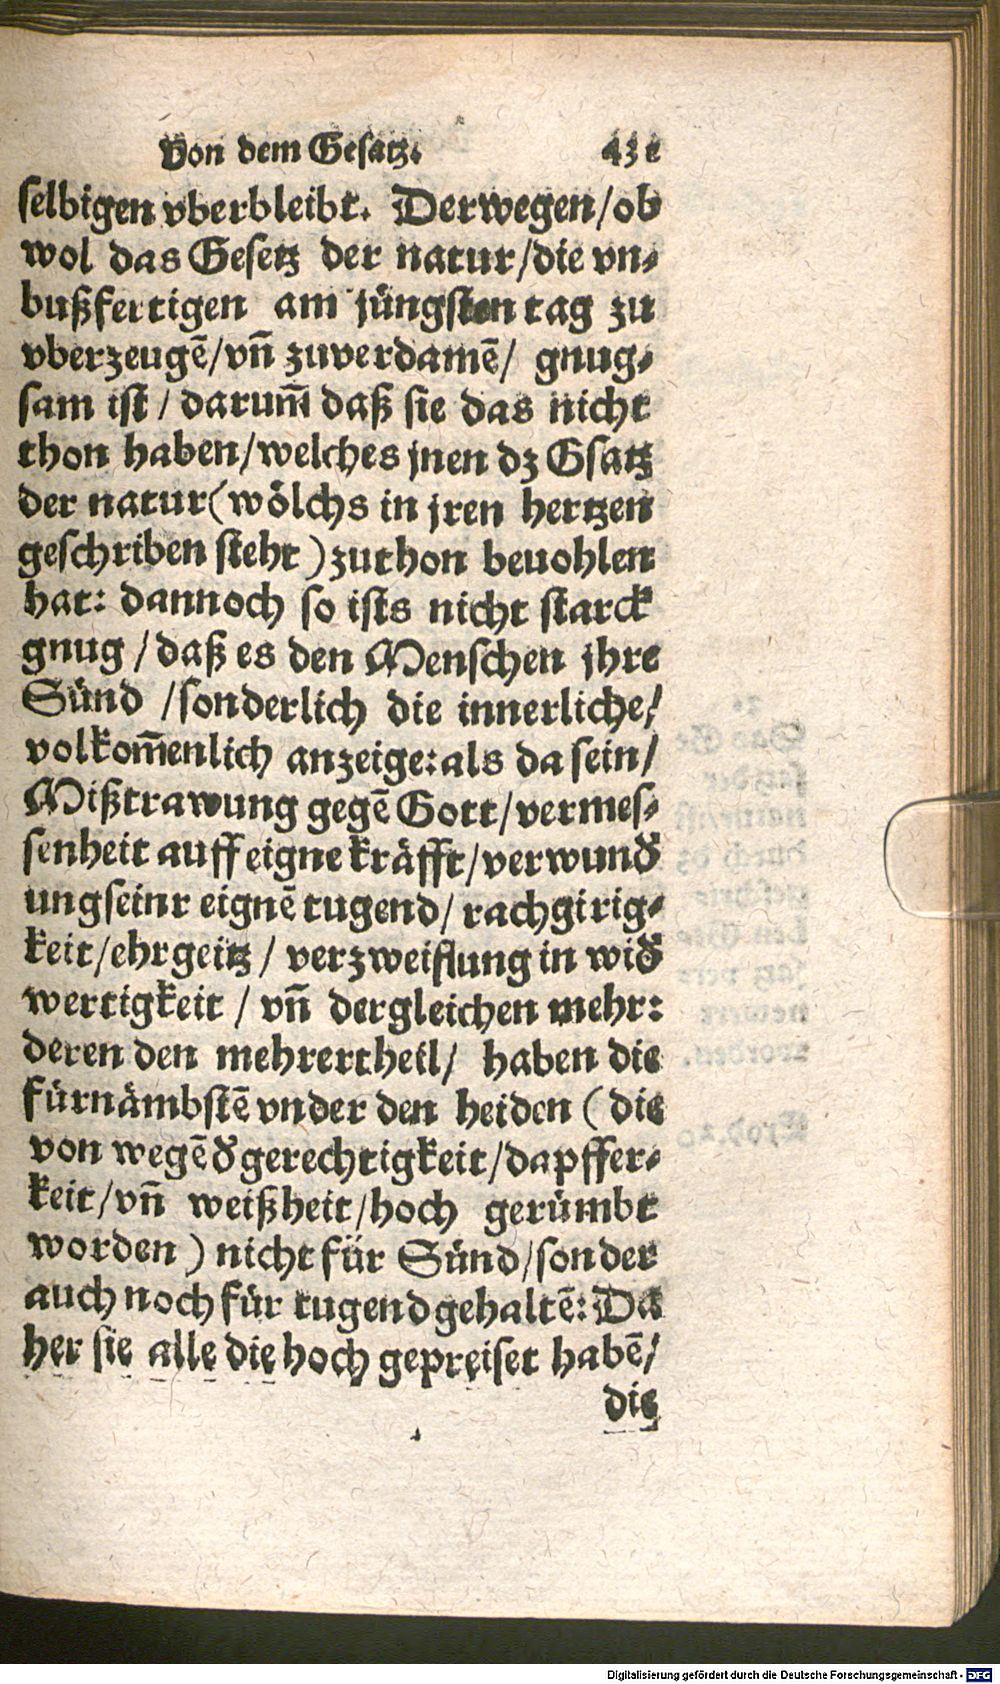 Von dem Gesatz. 431
selbigen vberbleibt. Derwegen/ob
wol das Gesetz der natur/die vn-
bußfertigen am jüngsten tag zu
vberzeugē/vn̄ zuverdamē/ gnug-
sam ist/darum̄ daß sie das nicht
thon haben/welches jnen dz Gsatz
der natur(wölchs in jren hertzen
geschriben steht)zuthon beuohlen
hat: dannoch so ists nicht starck
gnug/daß es den Menschen jhre
Sünd/sonderlich die innerliche/
volkom̄enlich anzeige:als da sein/
Mißtrawung gegē Gott/vermes-
senheit auff eigne kräfft/verwund
ung seinr eignē tugend/rachgirig-
keit/ehrgeitz/verzweiflung in wid
wertigkeit/vn̄ dergleichen mehr:
deren den mehrertheil/ haben die
fürnämbstē vnder den heiden (die
von wegē d gerechtigkeit/dapffer-
keit/vn̄ weißheit/hoch gerümbt
worden) nicht für Sünd/sonder
auch noch für tugend gehaltē: Da
her sie alle die hoch gepreiset habē/
die
Digitalisierung gefördert durch die Deutsche Forschungsgemeinschaft - DFG